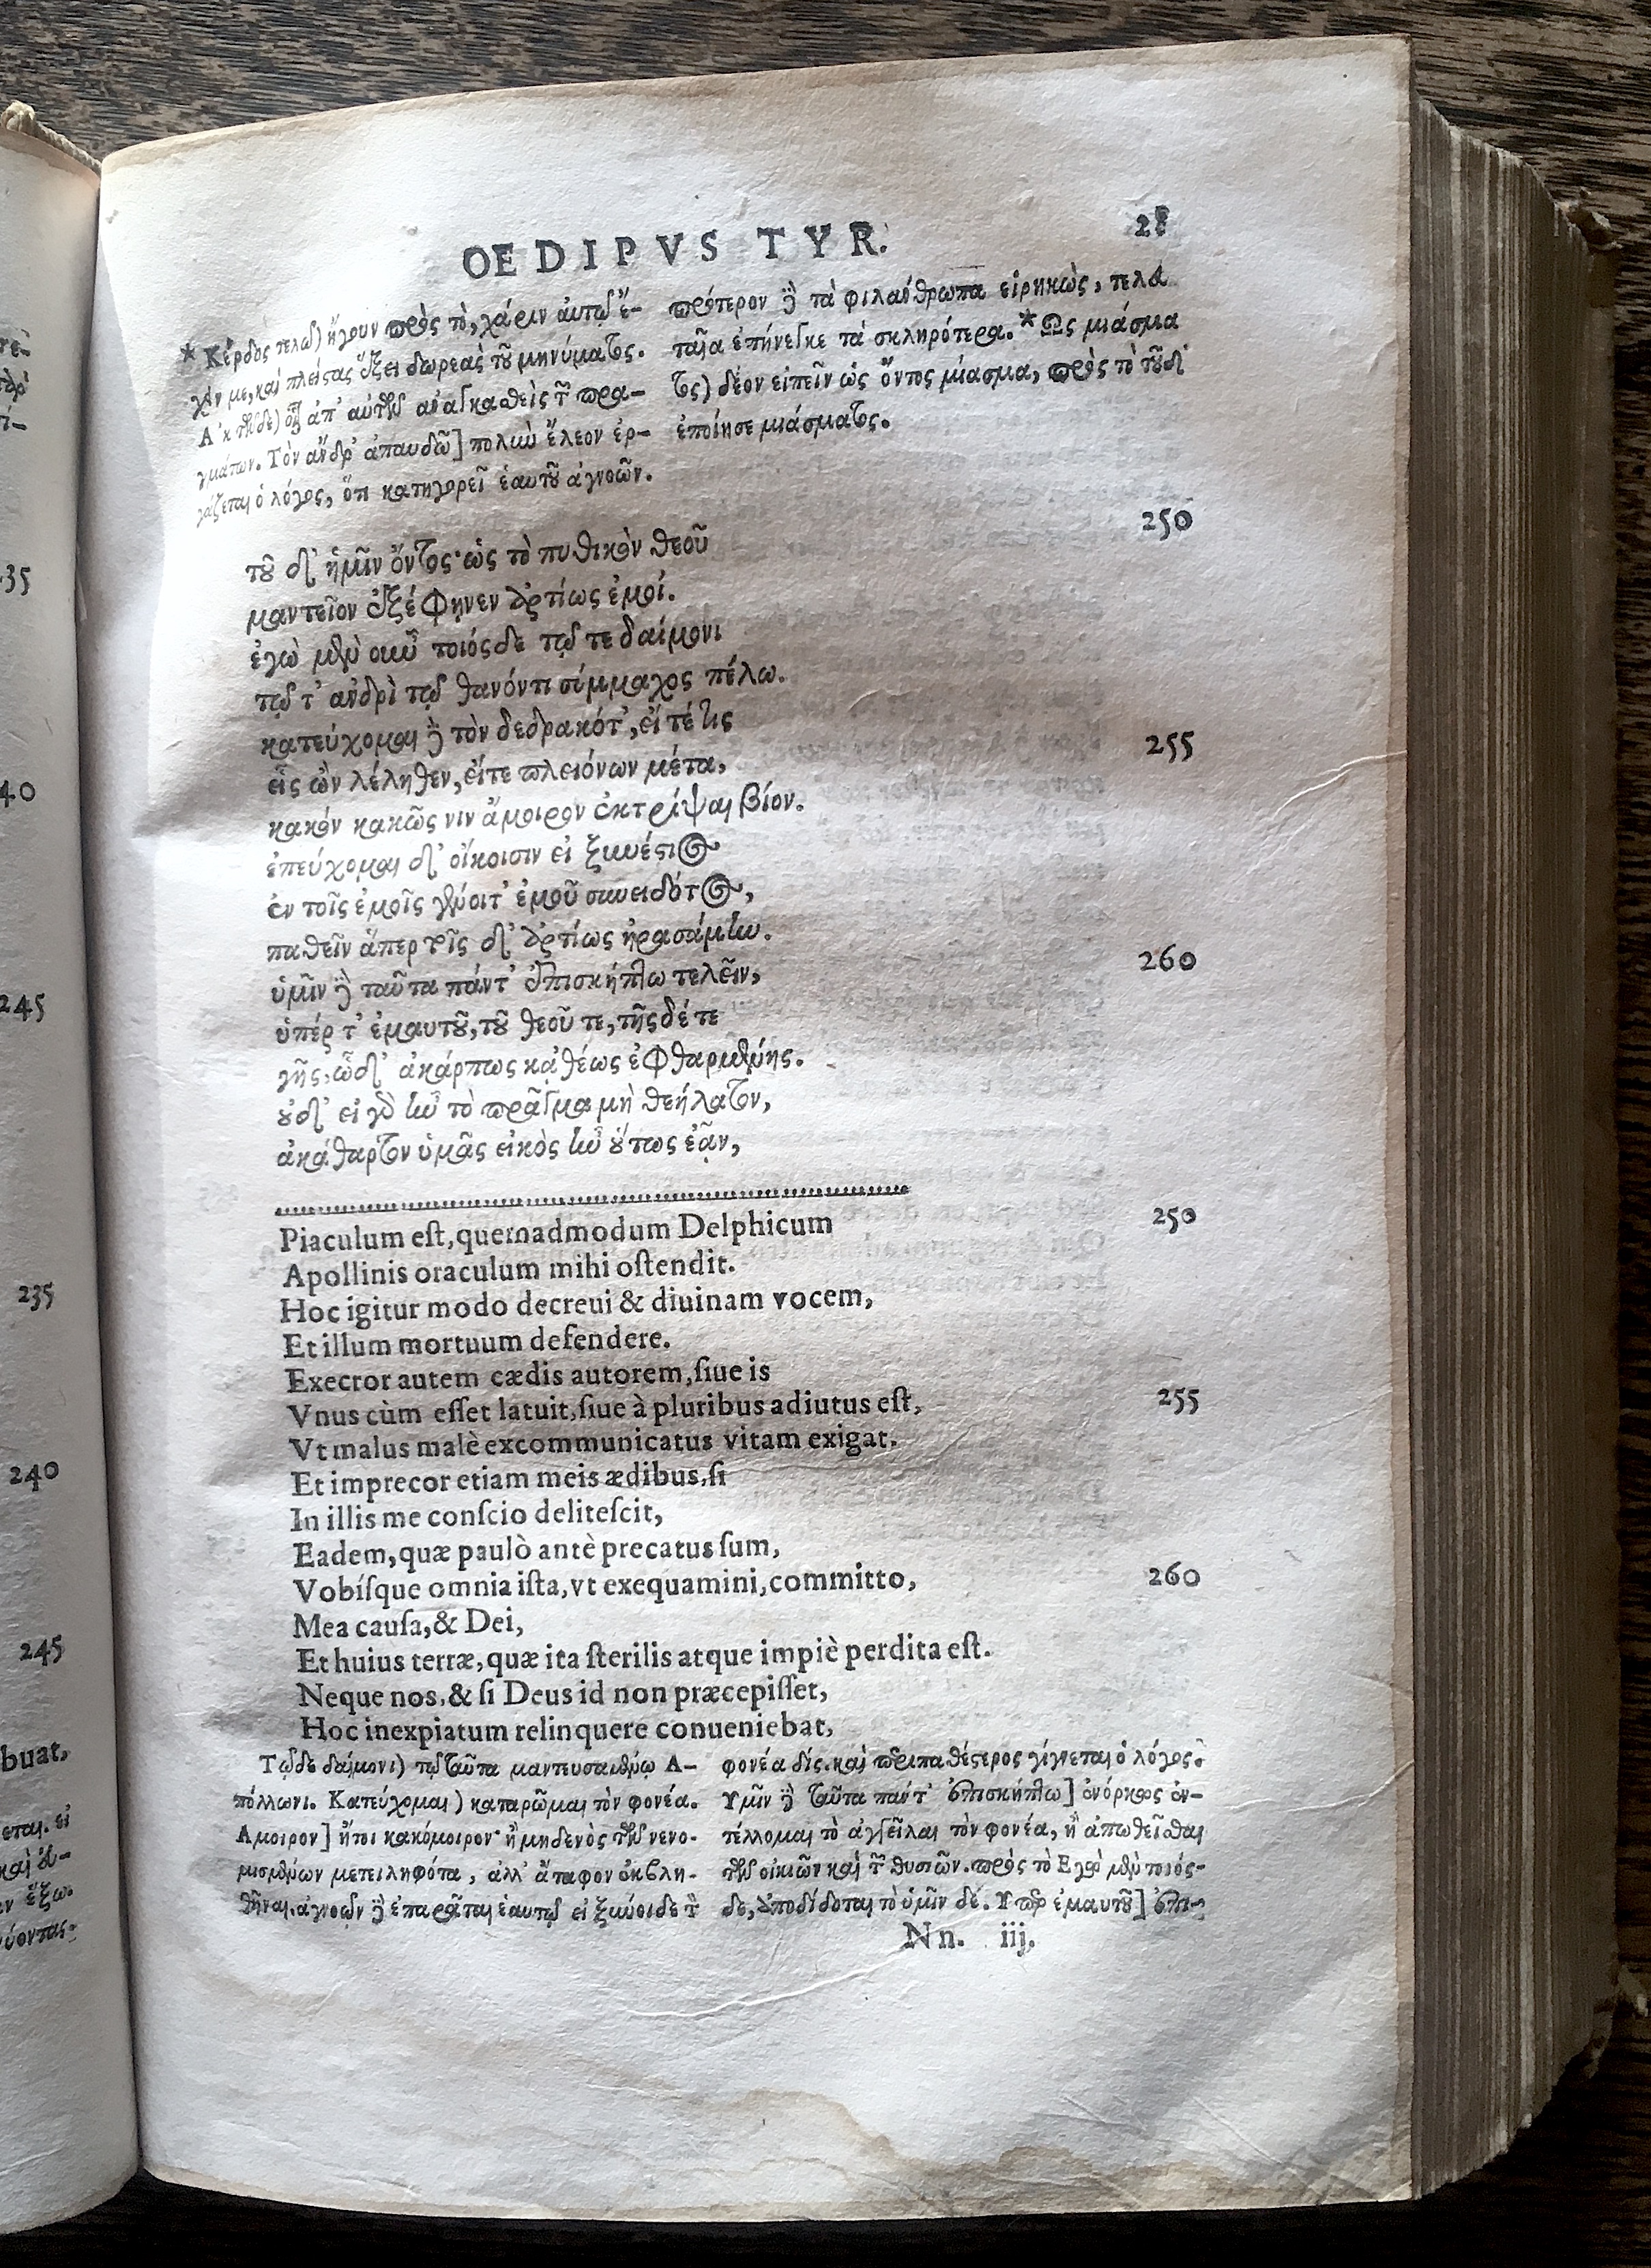 OEDIPVS TYR. 28
* Κέρδος τελῶ) ἤγουν πρὸς τὸ, χάριν αὐτῷ ἕ-
με, καὶ πλείστας ἕξει δωρεὰς τοῦ μηνύματος.
ἀπ' αὐτῶν ἀναγκασθεὶς τ πρα-
γμάτων. Τὸν ἄνδρ' ἀπαυδῶ] πολιὺ ἔλεον ἐρ-
γάζεται ὁ λόγος, ὅτι κατηγορεῖ ἑαυτοῦ ἀγνοῶν.
πρότερον ἢ τὰ φιλάνθρωπα εἰρηκὼς, τελευ
ταῖα ἐπήνεγκε τὰ σκληρότερα. * Ως μιάσμα
τος) δέον εἰπεῖν ὡς ὄντος μίασμα, πρὸς τὸ τοῦδ'
ἐποίησε μιάσματος.
τοῦδ' ἡμῖν ὄντος· ὡς τὸ πυθικὸν θεοῦ 250
μαντεῖον ἐξέφηνεν ἀρτίως ἐμοί.
ἐγὼ μὲν οὖν τοιόσδε τῷ τε δαίμονι
τῷ τ' ἀνδρὶ τῷ θανόντι σύμμαχος πέλω.
κατεύχομαι δὲ τὸν δεδρακότ', εἴ τέ τις
εἷς ὢν λέληθεν, εἴτε πλειόνων μέτα, 255
κακὸν κακῶς νιν ἄμοιρον ἐκτρίψαι βίον.
ἐπεύχομαι δ' οἴκοισιν εἰ ξυνέστιος
ἐν τοῖς ἐμοῖς γένοιτ' ἐμοῦ συνειδότος,
παθεῖν ἅπερ τοῖς δ' ἀρτίως ἠρασάμην.
ὑμῖν δὲ ταῦτα πάντ' ἐπισκήπτω τελεῖν, 260
ὑπέρ τ' ἐμαυτοῦ, τοῦ θεοῦ τε, τῆς δέ τε
γῆς, ὧδ' ἀκάρπως κἀθέως ἐφθαρμένης.
οὐδ' εἰ γὰρ ἦν τὸ πρᾶγμα μὴ θεήλατον,
ἀκάθαρτον ὑμᾶς εἰκὸς ἦν οὕτως ἐᾷν,
Piaculum est, quemadmodum Delphicum 250
Apollinis oraculum mihi ostendit.
Hoc igitur modo decreui & diuinam vocem,
Et illum mortuum defendere.
Execror autem cædis autorem, siue is
Vnus cùm esset latuit, siue à pluribus adiutus est, 255
Vt malus malè excommunicatus vitam exigat.
Et imprecor etiam meis ædibus, si
In illis me conscio delitescit,
Eadem, quæ paulò antè precatus sum,
Vobísque omnia ista, vt exequamini, committo, 260
Mea causa, & Dei,
Et huius terræ, quæ ita sterilis atque impiè perdita est.
Neque nos, & si Deus id non præcepisset,
Hoc inexpiatum relinquere conueniebat,
Τῷδε δαίμονι) τῷ ταῦτα μαντευσαμένῳ Α-
πόλλωνι. Κατεύχομαι) καταρῶμαι τὸν φονέα.
Αμοιρον] ἤτοι κακόμοιρον· ἢ μηδενὸς τῶν νενο-
μισμένων μετειληφότα, ἀλλ' ἄταφον ἐκβλη-
θῆναι. ἀγνοῶν δὲ ἐπαρᾶται ἑαυτῷ εἰ ξυνοιδε τ
φονέα δίς. καὶ περιπαθέστερος γίγνεται ὁ λόγος.
Υμῖν δὲ ταῦτα πάντ' ἐπισκήπτω] ἐνόρκως ἐν-
τέλλομαι τὸ ἀγγεῖλαι τὸν φονέα, ἢ ἀπωθεῖσθαι
τῶν οἰκιῶν καὶ τ θυσιῶν. πρὸς τὸ Εγὼ μὲν τοιός-
δε, ἀποδίδοται τὸ ὑμῖν δέ. Υπὲρ ἐμαυτοῦ] ἐπι-
Nn. iij.
35
40
245
235
240
245
buat,
εται. εἰ
ἔξω